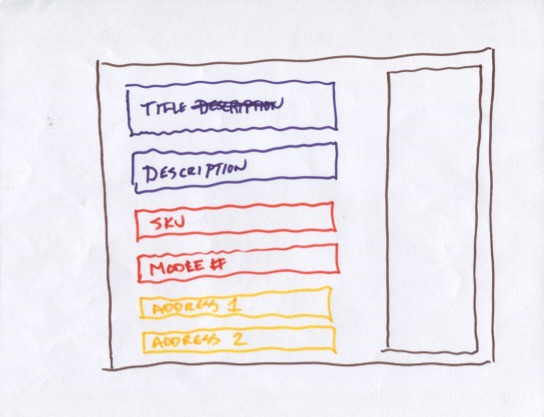 TITLE DESCRIPTION
DESCRIPTION
SKU
MODEL #
ADDRESS 1
ADDRESS 2